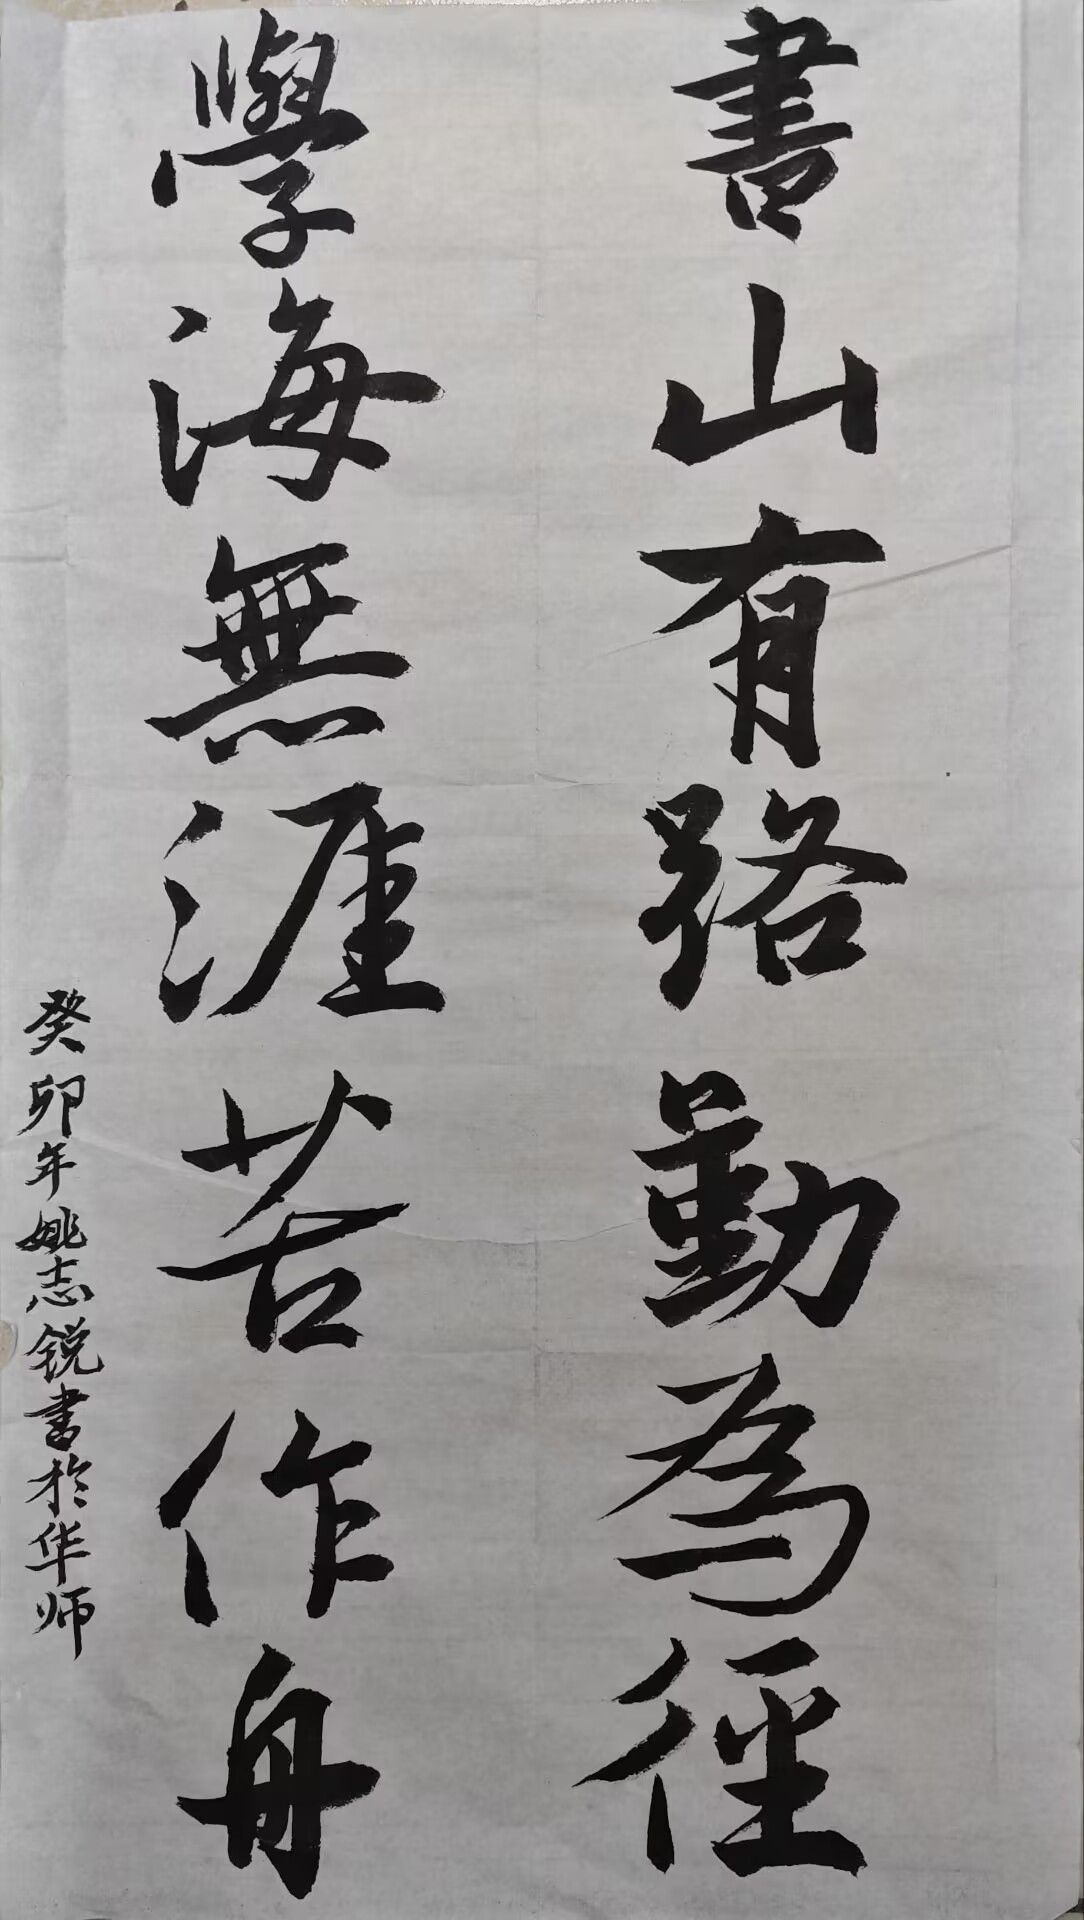 書山有路勤為徑
學海無涯苦作舟
癸卯年姚志锐書於华师